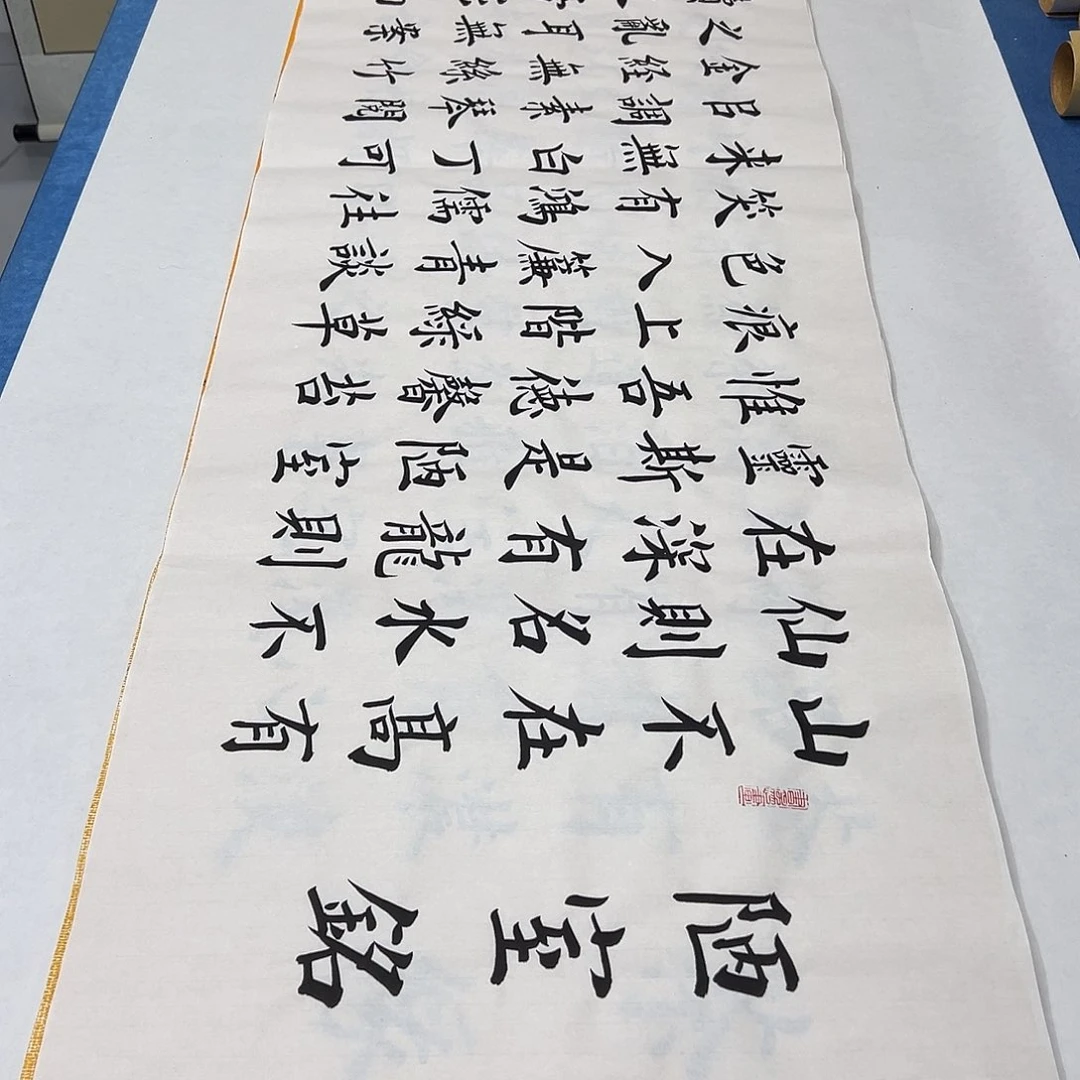 陋室銘
山不在髙有
仙則名水不
在深有龍則
靈斯是陋室
惟吾德馨苔
痕上階綠草
色入簾青談
笑有鴻儒往
来無白丁可
㠯調素琴閱
金経無絲竹
之亂耳無案